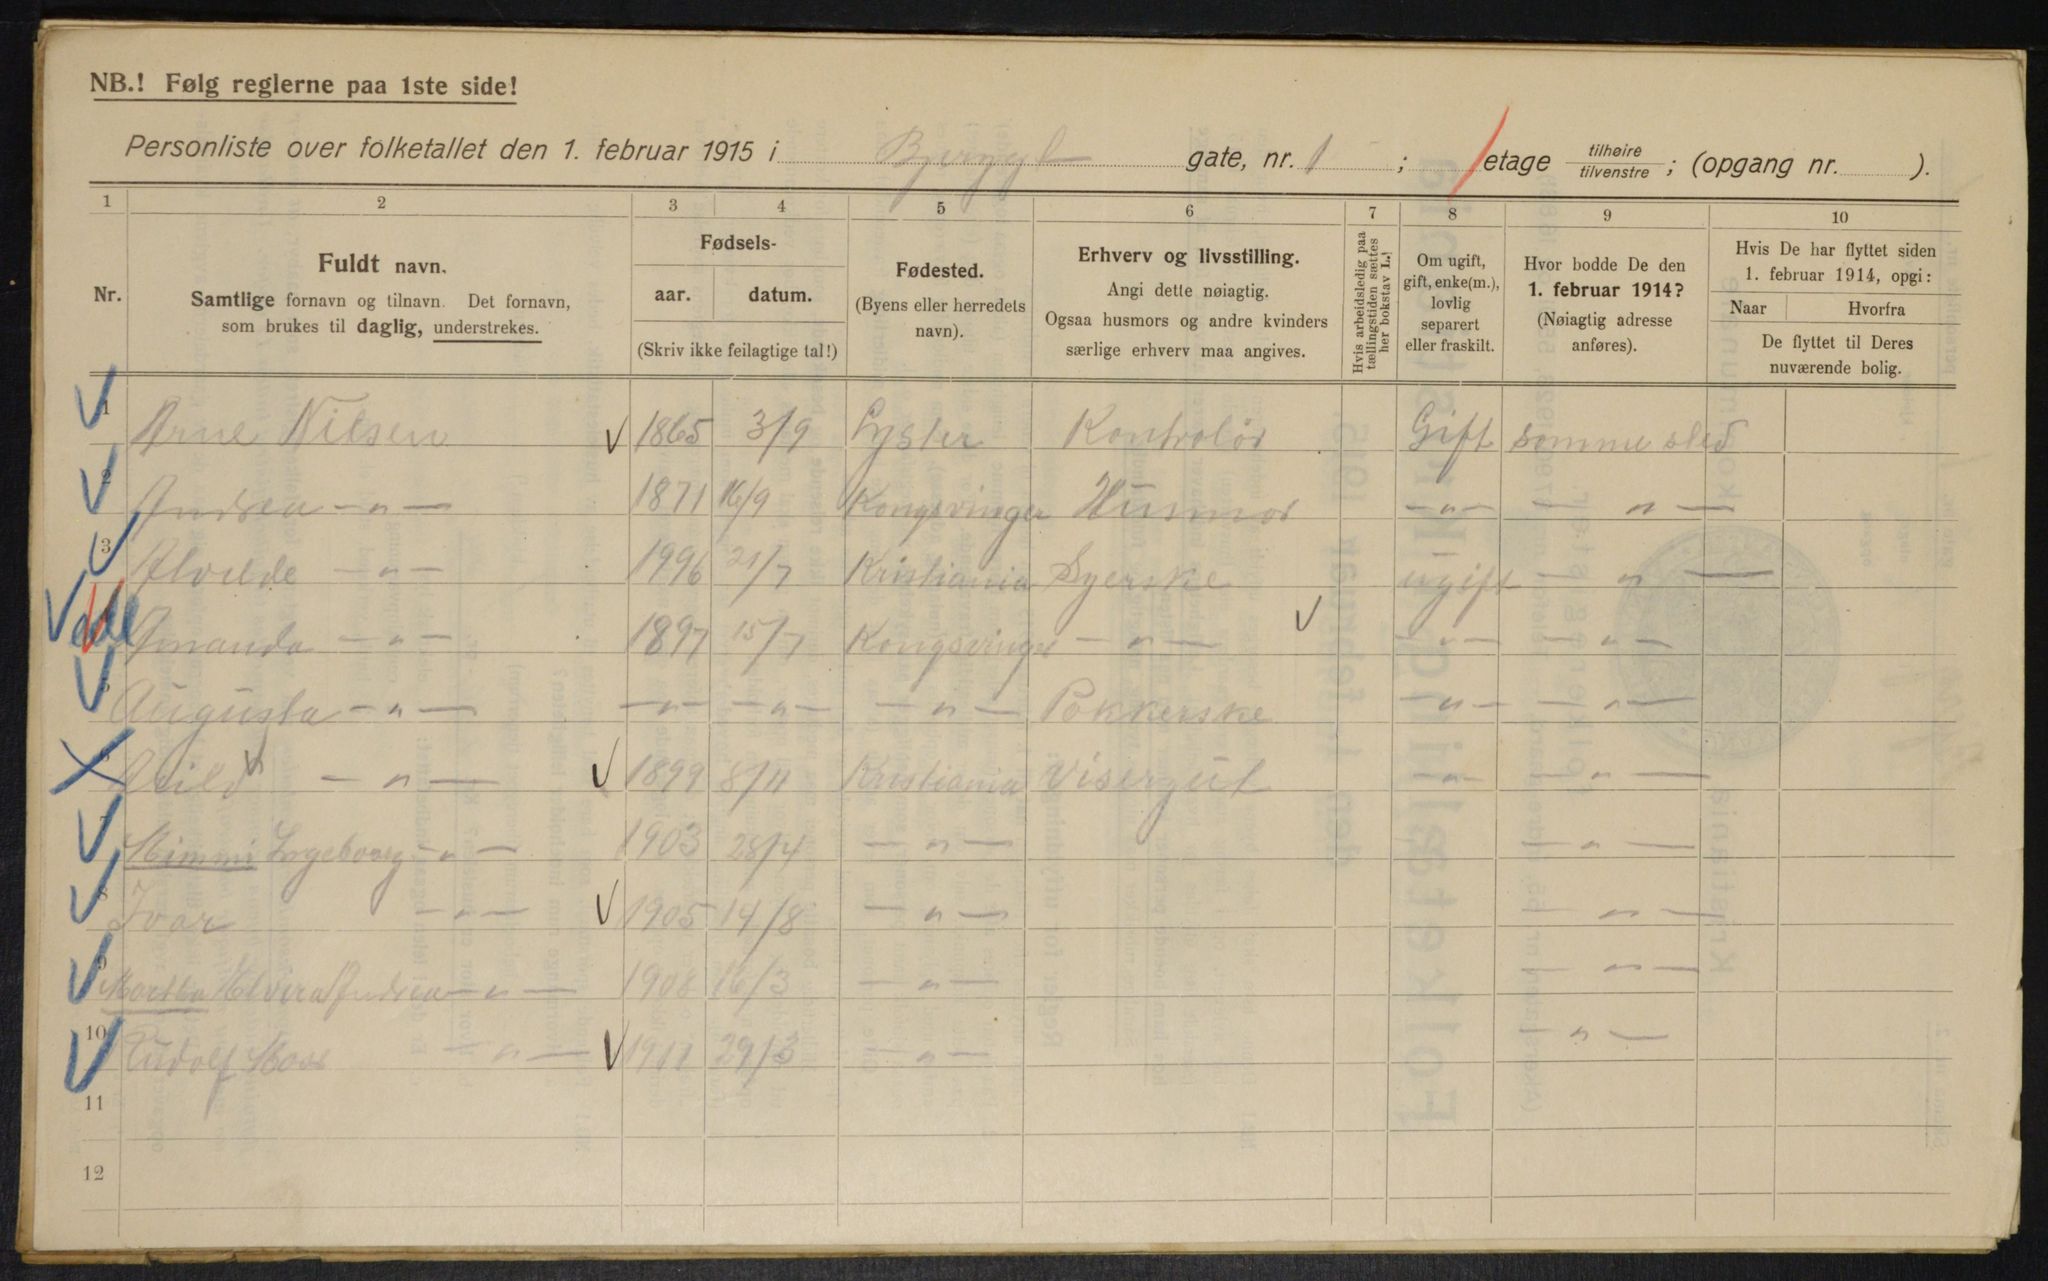 NB.! Følg reglerne paa 1ste side!
Personliste over folketallet den 1. februar 1915 i gate, nr. 1 ; 1 etage tilhøire tilvenstre ; (opgang nr. ).
1 2 3 4 5 6 7 8 9 10
Nr.
Fuldt navn.
Samtlige fornavn og tilnavn. Det fornavn,
som brukes til daglig, understrekes.
Fødsels-
aar. datum.
(Skriv ikke feilagtige tal!)
Fødested.
(Byens eller herredets
navn).
Erhverv og livsstilling.
Angi dette nøiagtig.
Ogsaa husmors og andre kvinders
særlige erhverv maa angives.
Hvis arbeidsledig paa
tællingstiden sættes
her bokstav L.!
Om ugift,
gift, enke(m.),
lovlig
separert
eller fraskilt.
Hvor bodde De den
1. februar 1914?
(Nøiagtig adresse
anføres).
Hvis De har flyttet siden
1. februar 1914, opgi:
Naar Hvorfra
De flyttet til Deres
nuværende bolig.
1 Arne Nilsen 1865 3/9 Lyster Kontrolör Gift samme sted
2 Andrea — „ — 1871 16/9 Kongsvinger Husmor — „ — — „ —
3 Alvilde — „ — 1996 21/7 Kristiania Syerske ugift „ —
4 Amanda — „ — 1897 15/7 Kongsvinger — „ — — „ — — „ —
5 Augusta — „ — — „ — — „ — — „ — Pakkerske — „ — — „ —
6 — „ — 1899 8/4 Kristiania Visergut — „ — — „ —
7 Mimmi Ingeborg — „ — 1903 28/4 — „ — — „ —
8 Ivar — „ — 1905 14/8 — „ — — „ —
9 Martha Andrea — „ — 1908 16/3 — „ — — „ —
10 Rudolf — „ — 29/3 — „ — — „ —
11
12